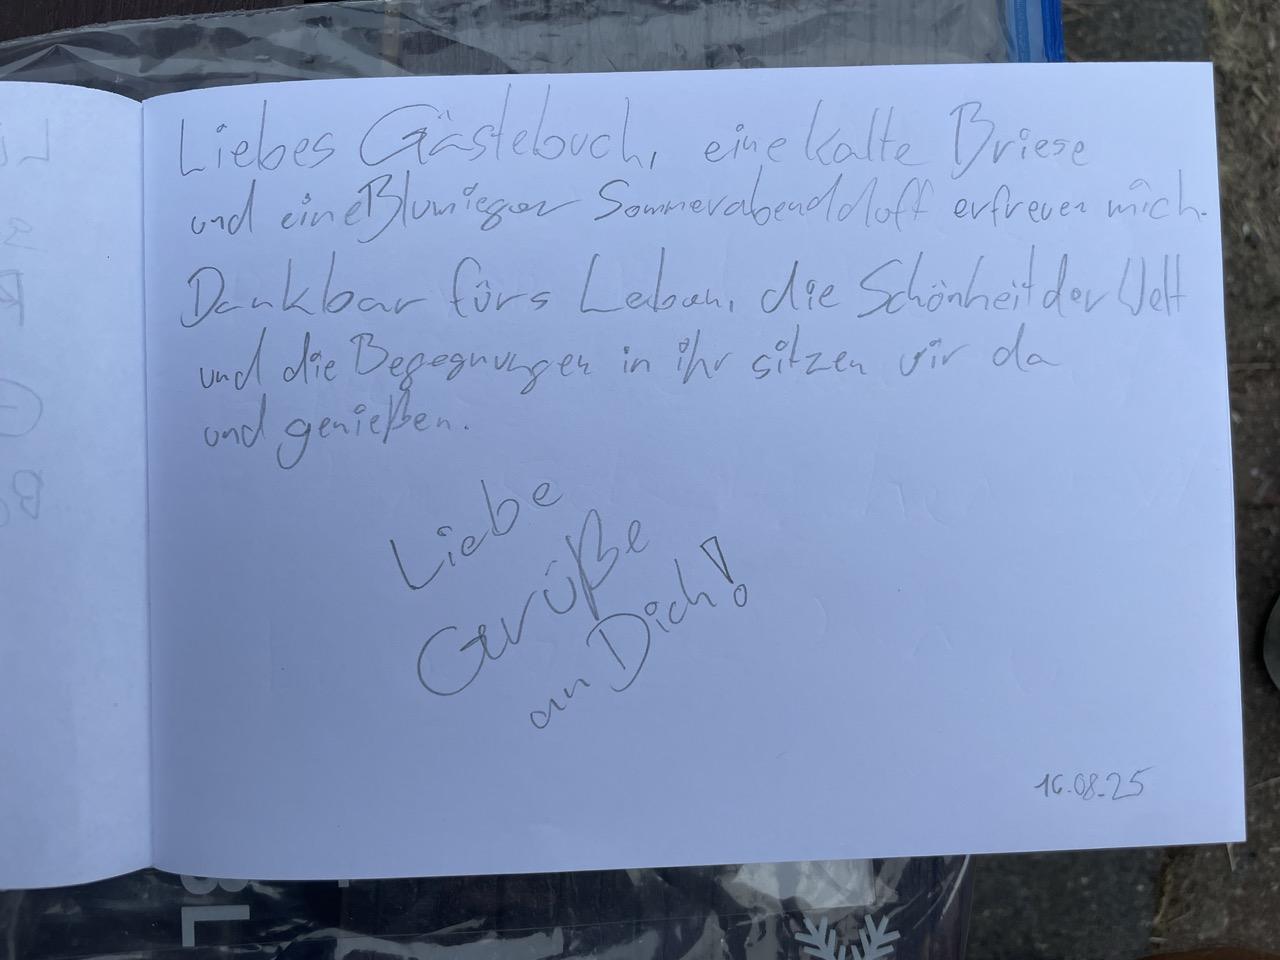 Liebes Gästebuch, eine kalte Briese
und eine Blumieger Sommerabendduft erfreuen mich.
Dankbar fürs Leben, die Schönheit der Welt
und die Begegnungen in ihr sitzen wir da
und genießen.
Liebe
Grüße
an Dich!
16.08.25